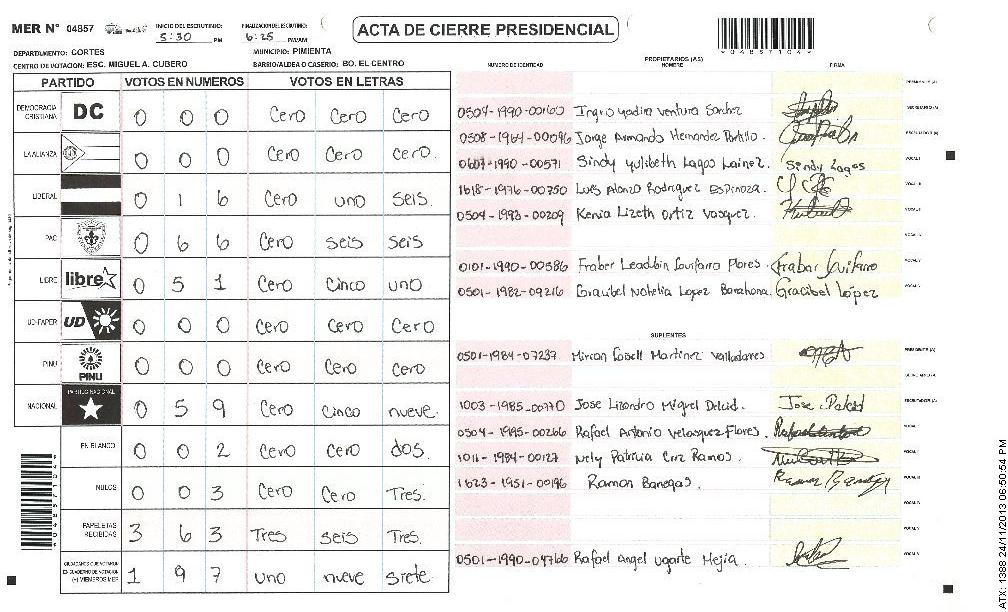 MER N° 04857
INICIO DEL ESCRUTINIO: 5:30 PM
FINALIZACION DEL ESCRUTINIO: 6:25 PM/AM
ACTA DE CIERRE PRESIDENCIAL
DEPARTAMENTO: CORTES
MUNICIPIO: PIMIENTA
CENTRO DE VOTACION: ESC. MIGUEL A. CUBERO
BARRIO/ALDEA O CASERIO: BO. EL CENTRO
PARTIDO VOTOS EN NUMEROS VOTOS EN LETRAS
DEMOCRACIA CRISTIANA DC 0 0 0 Cero Cero Cero
LA ALIANZA 0 0 0 Cero Cero Cero.
LIBERAL 0 1 6 Cero uno seis.
PAC 0 6 6 Cero seis seis
LIBRE libre 0 5 1 Cero Cinco uno
UD-FAPER UD 0 0 0 Cero Cero Cero
PINU PINU 0 0 0 Cero Cero Cero
NACIONAL PARTIDO NACIONAL 0 5 9 Cero Cinco nueve.
EN BLANCO 0 0 2 Cero Cero dos.
NULOS 0 0 3 Cero Cero Tres.
PAPELETAS RECIBIDAS 3 6 3 Tres seis Tres.
CIUDADANOS QUE VOTARON EN CUADERNO DE VOTACION (+) MIEMBROS MER 1 9 7 uno nueve siete
PROPIETARIOS (AS)
NUMERO DE IDENTIDAD NOMBRE FIRMA
PRESIDENTE (A)
0504-1990-00160 Ingrio yadira ventura Sanchez SECRETARIO (A)
0508-1964-00096 Jorge Armando Hernandez Portillo. ESCRUTADOR (A)
0607-1990-00571 Sindy yulibeth Lagos Lainez. Sindy Lagos VOCAL I
1618-1976-00750 Luis Alonzo Rodriguez Espinoza. VOCAL II
0504-1993-00209 Kenia Lizeth ortiz vasquez.
0101-1990-00586 Fraber Leaddin Guifarro Flores.
0501-1982-09216 Gracibel Notelia Lopez Barahona. Gracibel López
SUPLENTES
0501-1984-07237 Mirian Isbell Martinez Valladares PRESIDENTE (A)
SECRETARIO (A)
1003-1985-00770 Jose Lizandro Miguel Delcid. ESCRUTADOR (A)
0504-1995-00266 Rafael Antonio Velasquez Flores.
1011-1984-00127 Nely Patricia Cruz Ramos.
1623-1951-00196 Ramon Banegas.
0501-1990-04766 Rafael angel ugarte Mejia
0 4 8 5 7 1 0 4
ATX: 1388 24/11/2013 06:50:54 PM